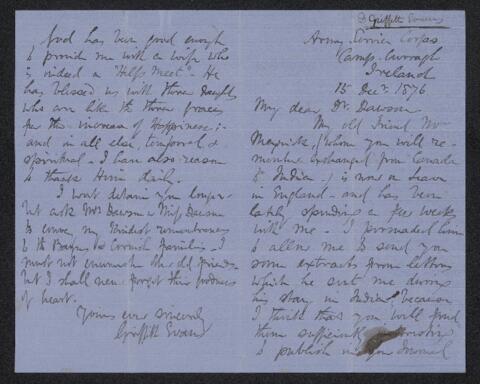 D Griffith Evans
Army Service Corps
Camp. Curragh
Ireland
15 Decr 1876
My dear Dr. Dawson
My old Friend Mr
Meyrick, (whom you will re-
member exchanged from Canada
to India) is now on leave
in England - and has been
lately spending a few weeks
with me - I persuaded him
to allow me to send you
some extracts from letters
which he sent me during
his stay in India, because
I think that you will find
them sufficiently interesting
to publish in your Journal
God has been good enough
to provide me with a wife who
is indeed a "Help Meet" - He
has blessed us with three Daughters
who are like the three graces
for the increase of Happiness; -
and in all else, temporal &
spiritual - I have also reason
to thank Him daily.
I wont detain you longer -
but ask Mrs Dawson & Miss Dawson
to convey my kindest remembrances
to the & Cornish Families - I
must not enumerate the old friends
but I shall never forget their goodness
of heart.
Yours ever sincerely
Griffith Evans